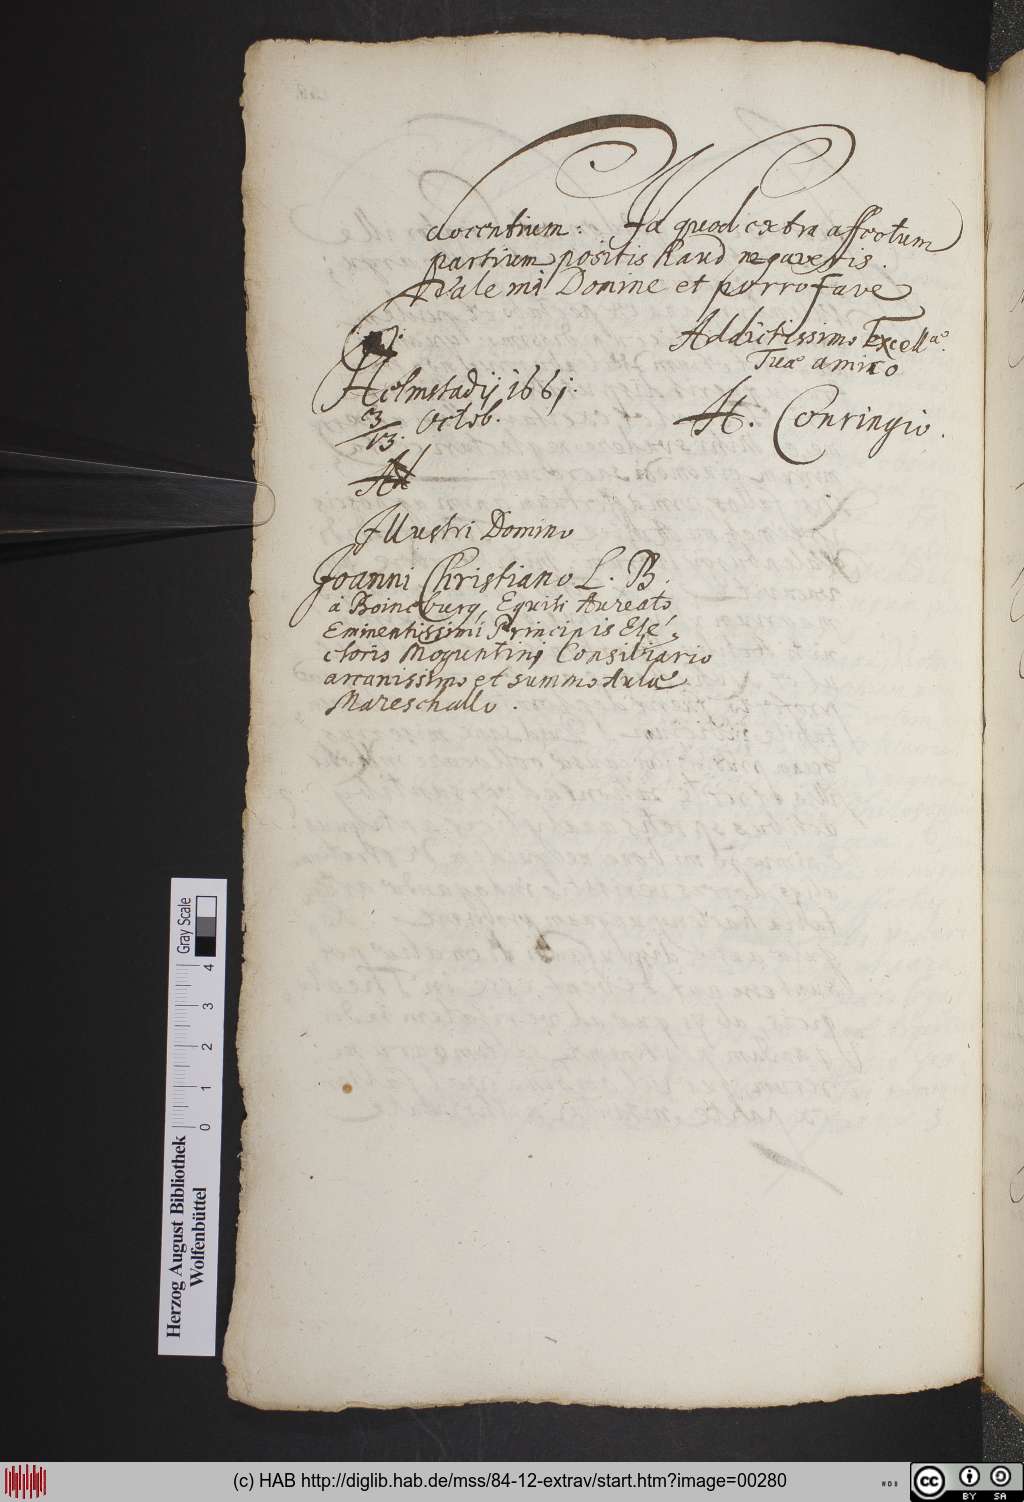 docentium: Id quod extra affectum
partium positis haud negaveris.
Vale mi Domine et porro fave
Addictissimo Excellæ.
Tuæ amico
Helmstadij 1661.
3/13. Octob.
H. Conringio.
Ad
Illustri Domino
Joanni Christiano L. B.
à Boineburg, Equiti Aureato,
Eminentissimi Principis Ele-
ctoris Moguntini Consiliario
arcanissimo et summo Aulæ
Mareschallo.
Herzog August Bibliothek
Wolfenbüttel
0 1 2 3 4
Gray Scale
(c) HAB http://diglib.hab.de/mss/84-12-extrav/start.htm?image=00280
WDB
cc BY SA